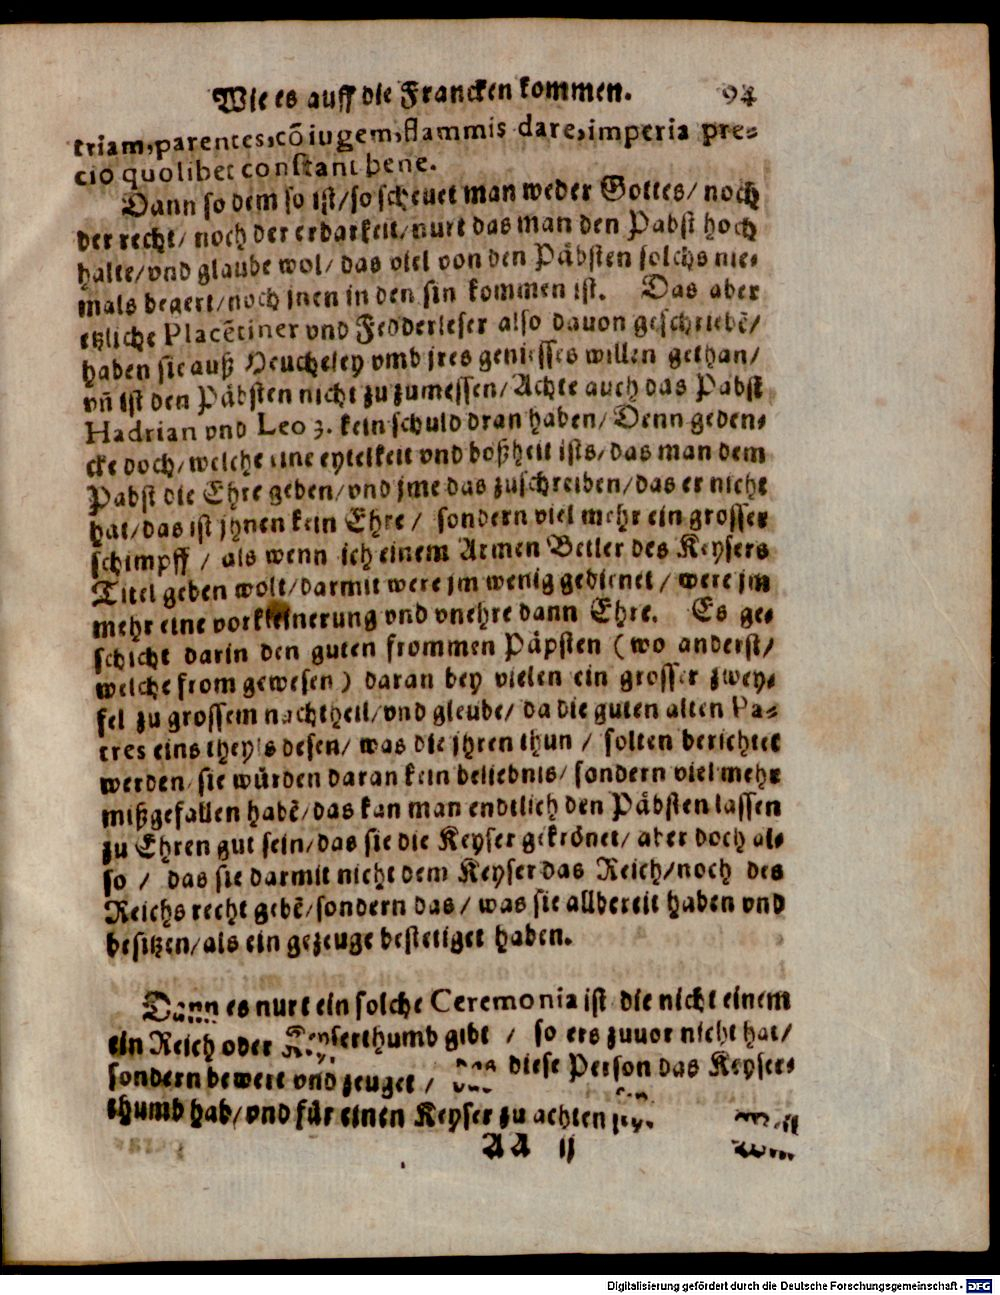 Wie es auff die Francken kommen. 94
triam, parentes, cõiugem, flammis dare, imperia pre-
cio quolibet constant bene.
Dann so dem so ist/ so scheuet man weder Gottes/ noch
der recht/ noch der erbarkeit/ nurt das man den Pabst hoch
halte/ vnd glaube wol/ das viel von den Päbsten solchs nie-
mals begert/ noch jnen in den sin kommen ist. Das aber
etzliche Placẽtiner vnd Fedderleser also dauon geschriebẽ/
haben sie auß Heucheley vmb jres geniesses willen gethan/
vñ ist den Päbsten nicht zu zumessen/ Achte auch das Pabst
Hadrian vnd Leo 3. kein schuld dran haben/ Denn geden-
cke doch/ welche eine eytelkeit vnd boßheit ists/ das man dem
Pabst die Ehre geben/ vnd jme das zuschreiben/ das er nicht
hat/ das ist jhnen kein Ehre/ sondern viel mehr ein grosser
schimpff / als wenn ich einem Armen Betler des Keysers
Titel geben wolt/ darmit were jm wenig gedienet / were jm
mehr eine vorkleinerung vnd vnehre dann Ehre. Es ge-
schicht darin den guten frommen Päpsten (wo anderst/
welche from gewesen) daran bey vielen ein grosser zwey-
fel zu grossem nachtheil/ vnd gleube/ da die guten alten Pa-
tres eins theyls desen/ was die jhren thun / solten berichtet
werden/ sie würden daran kein beliebnis/ sondern viel mehr
mißgefallen habẽ/ das kan man endtlich den Päbsten lassen
zu Ehren gut sein/ das sie die Keyser gekrönet/ aber doch al-
so / das sie darmit nicht dem Keyser das Reich/ noch des
Reichs recht gebẽ/ sondern das/ was sie allbereit haben vnd
besitzen/ als ein gezeuge bestetiget haben.
Dann es nurt ein solche Ceremonia ist die nicht einem
ein Reich oder Keyserthumb gibt / so ers zuuor nicht hat/
sondern bewert vnd zeuget / das diese Person das Keyser-
thumb hab/ vnd für einen Keyser zu achten sey.
AA ij
Digitalisierung gefördert durch die Deutsche Forschungsgemeinschaft - DFG